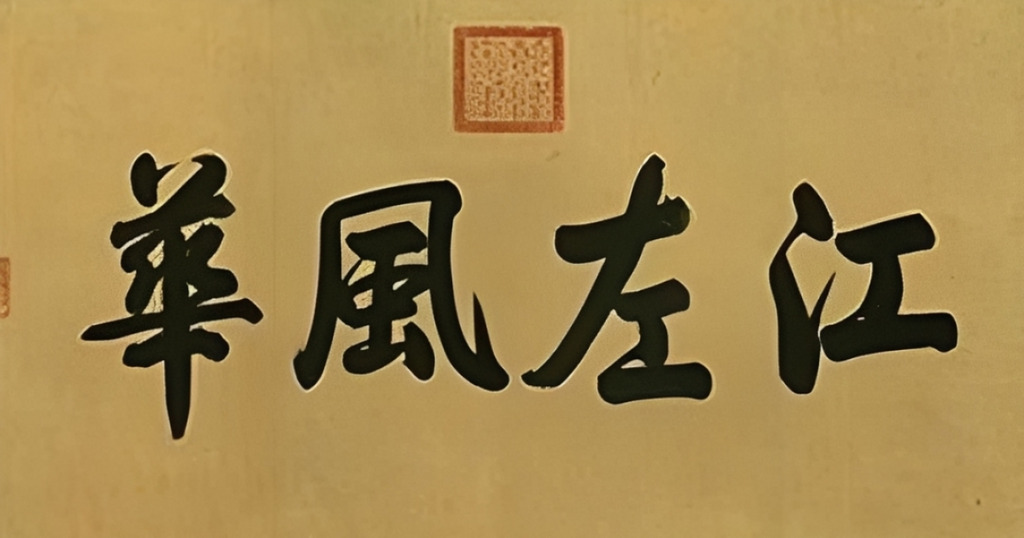 江左風華